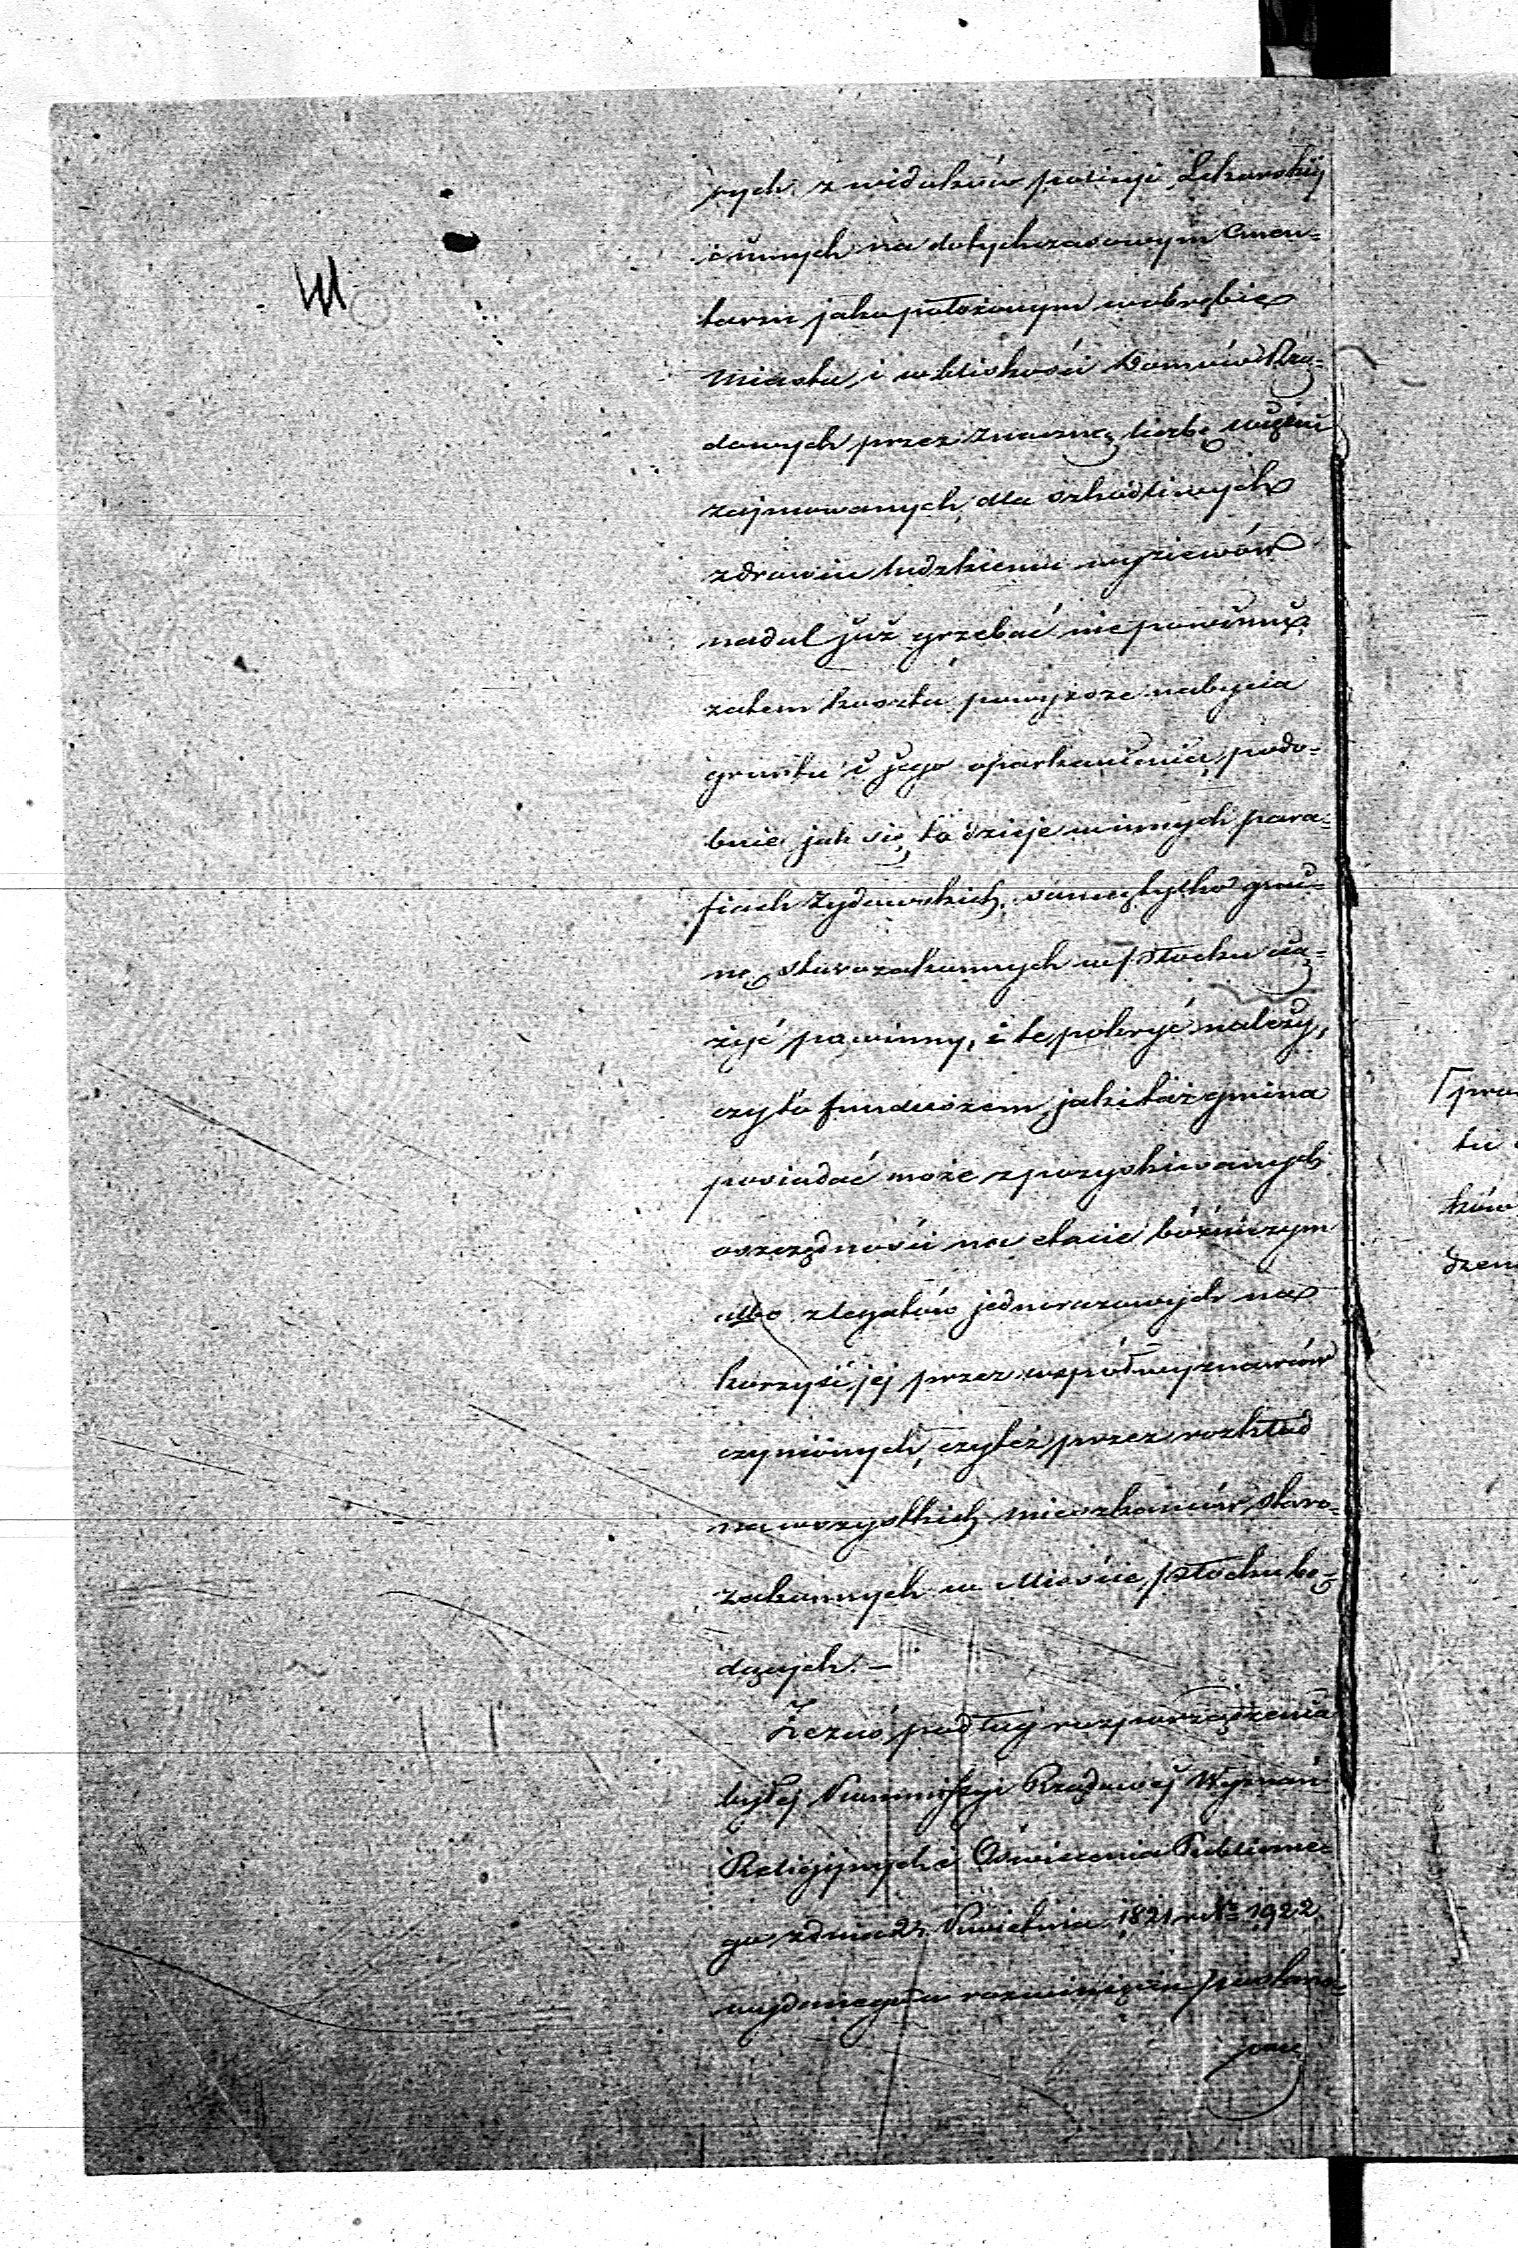 rych z widoków policyi Lekarskiej
i innych na dotychczasowym Cmen=
tarzu jako położonym w obrębie
Miasta, i w bliskości Domów Rzą=
dowych przez znaczną liczbę więźni
zajmowanych, dla szkodliwych
zdrowiu ludzkiemu wyziewów
nadal już grzebać nie powinny,
zatem koszta powyższe nabycia
gruntu i jego oparkanienia, podo=
bnie jak się to dzieje w innych para=
fiach Żydowskich, samą tylko gmi=
nę starozakonnych w Płocku cią=
żyć powinny, i te pokryć należy,
czyto funduszem jaki taż gmina
posiadać może z pozyskiwanych
oszczędności na etacie bóżniczym
albo z legatów jednorazowych na
korzyść jej przez współwyznawców
czynionych, czyteż przez rozkład
na wszystkich mieszkańców staro=
zakonnych w Mieście Płocku bę=
dących. —
Zczas podług rozporządzenia
byłej Kommissyi Rządowej Wyznań
Religijnych i Oświecenia Publiczne=
go z dnia 21 Kwietnia 1821 r. N° 1922
wydanego w rozwinięciu postano=